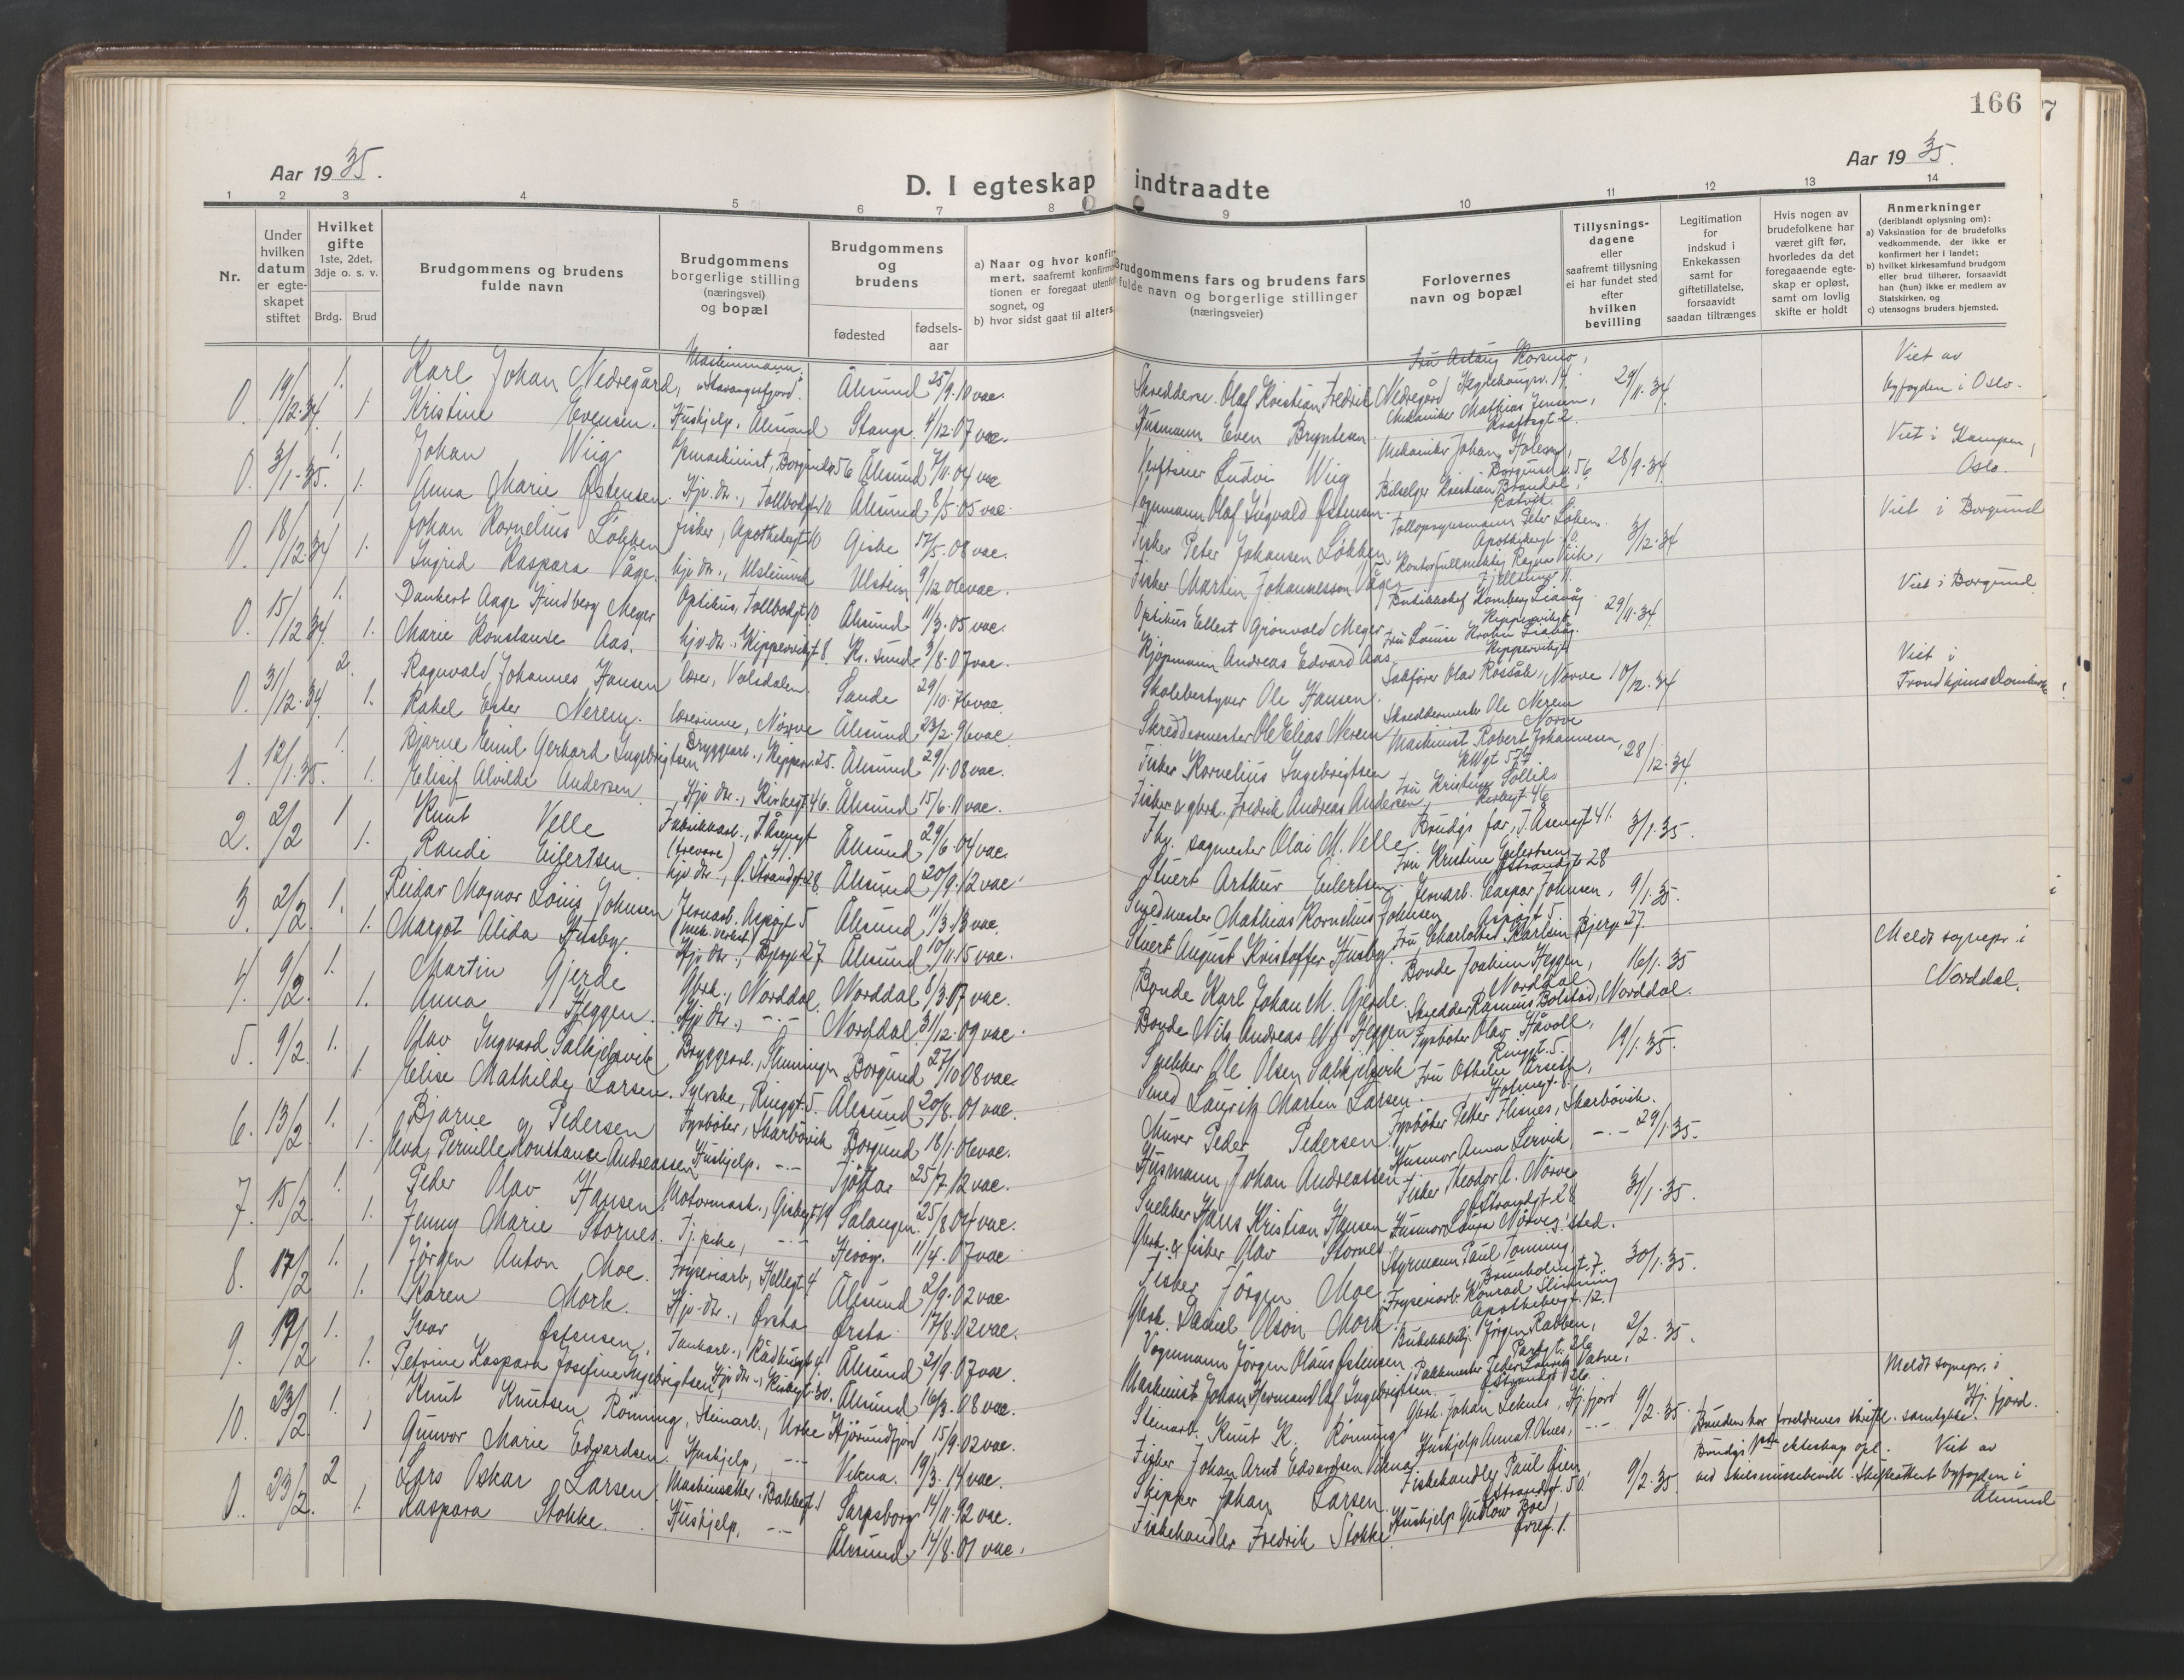 166
Aar 1935.
Aar 1935.
D. I egteskap indtraadte
1 2 3 4 5 6 7 8 9 10 11 12 13 14
Nr.
Under hvilken datum er egteskapet stiftet
Hvilket gifte 1ste, 2det, 3dje o. s. v.
Brdg. Brud
Brudgommens og brudens fulde navn
Brudgommens borgerlige stilling (næringsvei) og bopæl
Brudgommens og brudens
fødested fødsels-aar
a) Naar og hvor konfir
mert, saafremt konfirma
tionen er foregaat utenfor
sognet, og
b) hvor sidst gaat til alters
Brudgommens fars og brudens fars
fulde navn og borgerlige stillinger
(næringsveier)
Forlovernes navn og bopæl
Tillysnings-dagene eller saafremt tillysning ei har fundet sted efter hvilken bevilling
Legitimation for indskud i Enkekassen samt for giftetillatelse, forsaavidt saadan tiltrænges
Hvis nogen av brudefolkene har været gift før, hvorledes da det foregaaende egteskap er opløst, samt om lovlig skifte er holdt
Anmerkninger
(deriblandt oplysning om):
a) Vaksination for de brudefolks vedkommende, der ikke er konfirmert her i landet;
b) hvilket kirkesamfund brudgom eller brud tilhører, forsaavidt han (hun) ikke er medlem av Statskirken, og
c) utensogns bruders hjemsted.
0. 19/12.34. 1. Karl Johan Nedregård, Maskinmann, "Stavangerfjord". Ålesund 25/9.10 vac. Skreddersv. Olaf Kristian Fredrik Nedregård Fru Aslaug Korsmo, 29/11.34. Viet av byfogden i Oslo.
1. Kristine Evensen. Hushjelp. Ålesund Stange. 4/12.07 vac. Husmann Even Bryntesen. Mekaniker Mathias Jensen,
0. 3/1-35. 1. Johan Wiig Ålesund 7/11.04 vac Verftseier Ludvig Wiig Mekaniker Johan Holesen, Borgund v. 56 28/9.34 Viet i Kampen, Oslo.
1. Anna Marie Østensen. Hjv. dtr., Tollbodgt 11 Ålesund 8/5.05 vac. Vognmann Olaf Ingvald Østensen. Bilselger Kristian Brandal,
0. 18/12.34 1. Johan Kornelius Løkken Fisker, Apothekergt 10 Giske 17/5.08 vac. Fisker Peter Johansen Løkken Apothekergt. 10. 3/12.34 Viet i Borgund
1. Ingrid Kaspara Våge. hjv. dtr., Ulsteinvik Ulstein 9/12 06 vac. Fisker Martin Johannesson Våge Kontorfullmektig Ragnar Vik,
0. 15/12 34. 1. Dankert Aage Hindberg Meyer Optikus, Tollbodgt 10 Ålesund 11/3.05 vac. Optikus Ellert Grönvold Meyer 29/11.34. Viet i Borgund
1. Marie Konstanse Aas. hjv. dtr., Kippervikgt 8. Kr. sund 3/8.07 vac. Kjøpmann Andreas Edvard Aas. Kippervikgt
0. 31/12.34. 2. Ragnvald Johannes Hansen lærer, Volsdalen. Sande 29/10.76 vac. Skolebestyrer Ole Hansen. Sakfører Olav Rossåk, Nørve 10/12.34 Viet i Trondhjems Domkirke
1. Rakel Ester Nerem. lærerinne, Nørve Ålesund 23/2.96 vac. Skreddermester Ole Elias Nerem Skreddermester Ole Nerem Nørve
1. 12/1.35. 1. Bjarne Emil Gerhard Ingebrigtsen Bryggearb., Kipperv. 25. Ålesund 29/1.08 vac. Fisker Kornelius Ingebrigtsen Maskinist Robert Johannesen, 28/12.34.
1. Elisif Alvilde Andersen. Hjv. dtr., Kirkegt 46. Ålesund 15/6.11 vac. Fisker & gbrk. Fredrik Andreas Andersen, Kirkegt. 46
2. 2/2 1 Knut Velle Fabrikkarb., J. Åsengt 41. Ålesund 29/6.04 vac. Fhv. sagmester Olai M. Velle Brudg's far, J. Åsengt. 41. 3/1.35.
1. Randi Eilertsen. hjv. dtr., Ø. Strandgt. 28. Ålesund 20/9.12 vac. Stuert Arthur Eilertsen. Fru Kristine Eilertsen
3. 2/2. 1. Reidar Magnar Louis Johnsen Jernarb. Aspøgt 5 Ålesund 11/3.13 vac. Smedmester Mathias Kornelius Johnsen Jernarb. Caspar Johnsen, Aspøgt 5. 9/1.35.
1. Margot Alida Husby. Hjv. dtr., Bjergt 27 Ålesund 10/11.15 vac. Stuert August Kristoffer Husby. Fru Charlotte Karlsen, Bjergt 27.
4. 9/2. 1. Martin Gjerde Gbrk., Norddal. Norddal 8/3.07 vac. Bonde Karl Johan M. Gjerde. Bonde Joakim Heggen, Norddal 16/1.35 Meldt sognepr. i Norddal.
1. Anna Heggen. Hjv. dtr., -.- Norddal. 31/12.09 vac. Bonde Nils Andreas N. Heggen Skredder Rasmus Bolstad, Norddal.
5. 9/2. 1. Olav Ingvard Satkjelsvik Bryggearb., Slinningen Borgund 27/10 08 vac. Snekker Ole Olsen Satkjelsvik Fyrbøter Olav Håvoll, Ringgt. 5. 19/1.35.
1. Elise Mathilde Larsen. Syerske, Ringgt. 5. Ålesund 20/8.01 vac. Smed Lauritz Martin Larsen. Fru Othilie Årseth,
6. 13/2 1. Bjarne Pedersen Fyrbøter, Skarbøvik Borgund 18/1.06 vac. Murer Peder Pedersen Fyrbøter Petter Flisnes, Skarbøvik. 29/1.35.
1. Pernille Konstanse Andreassen Hushjelp. -.- Tjøtta 25/7.12 vac. Husmann, Johan Andreassen Husmor Anna Lervik, -.-
7. 15/2. 1. Peder Olav Hansen Motormask., Salangen. 25/8 04 vac. Snekker Hans Kristian Hansen Fisker Theodor A. Nørve 31/1.35.
1. Jenny Marie Stornes. Tj. pike, -.- Herøy. 11/4.07 vac Gbrk. & fisker Olav Stornes. sted.
8. 17/2 1. Jørgen Anton Moe. Fryseriarb, Ålesund 2/9.02 vac. Fisker Jørgen Moe. Styrmann Paul Tonning, 30/1.35.
1. Karen Mork. Hjv. dtr., Ørsta Ørsta. 17/8.02 vac. Gbrk. Daniel Olson Mork. Fryseriarb. Konrad Slinning Apothekergt. 12.
9. 19/2 1. Ivar Østensen. Tankarb., Rådhusgt 4. Ålesund 21/9.07 vac. Vognmann Jørgen Olaus Østensen Jørgen Rabben, Parkgt. 26 2/2.35.
1. Petrine Kaspara Josefine Ingebrigtsen Hjv. dtr., Kirkegt. 30. Ålesund 16/3.08 vac. Maskinist Johan Herman Olaf Ingebrigtsen. Pakkmester Peder Lauritz Vatne,
10. 23/2. 1. Knut Knutsen Rönning, Steinarb., Urke Hjörundfjord 15/9.02 vac. Steinarb. Knut K. Rönning Gbrk. Johan Leknes, Hj. fjord 9/2.35. Meldt sognepr. i Hj. fjord.
1 Gunvor Marie Edvardsen. Hushjelp, -.- Vikna. 19/3.14 vac. Fisker Johan Arnt Edvardsen Vikna -.- Bruden har foreldrenes skriftl. samtykke.
0. 23/2. 2 Lars Oskar Larsen. Maskinsetter. Bakkegt. 1 Sarpsborg 14/11.92 vac. Skipper Johan Larsen. Fiskehandler Paul Øien 9/2.35. Brudg's 1ste ekteskap opl. ved skilsmissebevill. Skifteattest Viet av byfogden i Ålesund
1. Kaspara Stokke. Hushjelp. -.- Ålesund. 14/8.01 vac. Fiskehandler Fredrik Stokke.